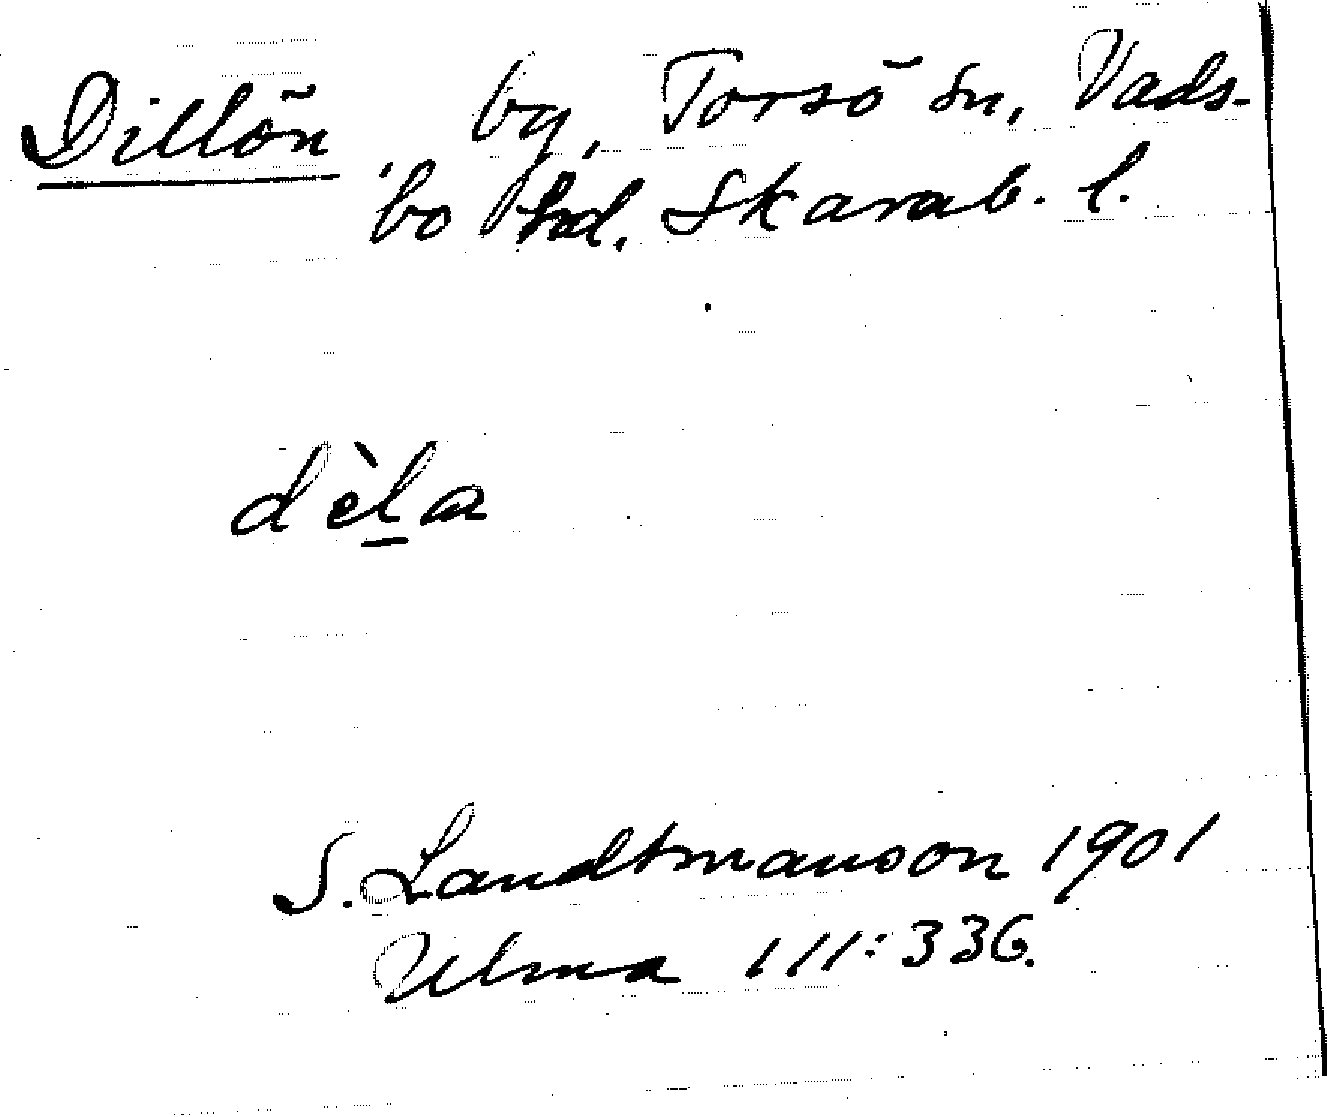 Dillön by, Torsö sn, Vads-
bo hd. Skarab. l.
dèla
S. Landtmanson 1901
Ulma 111:336.